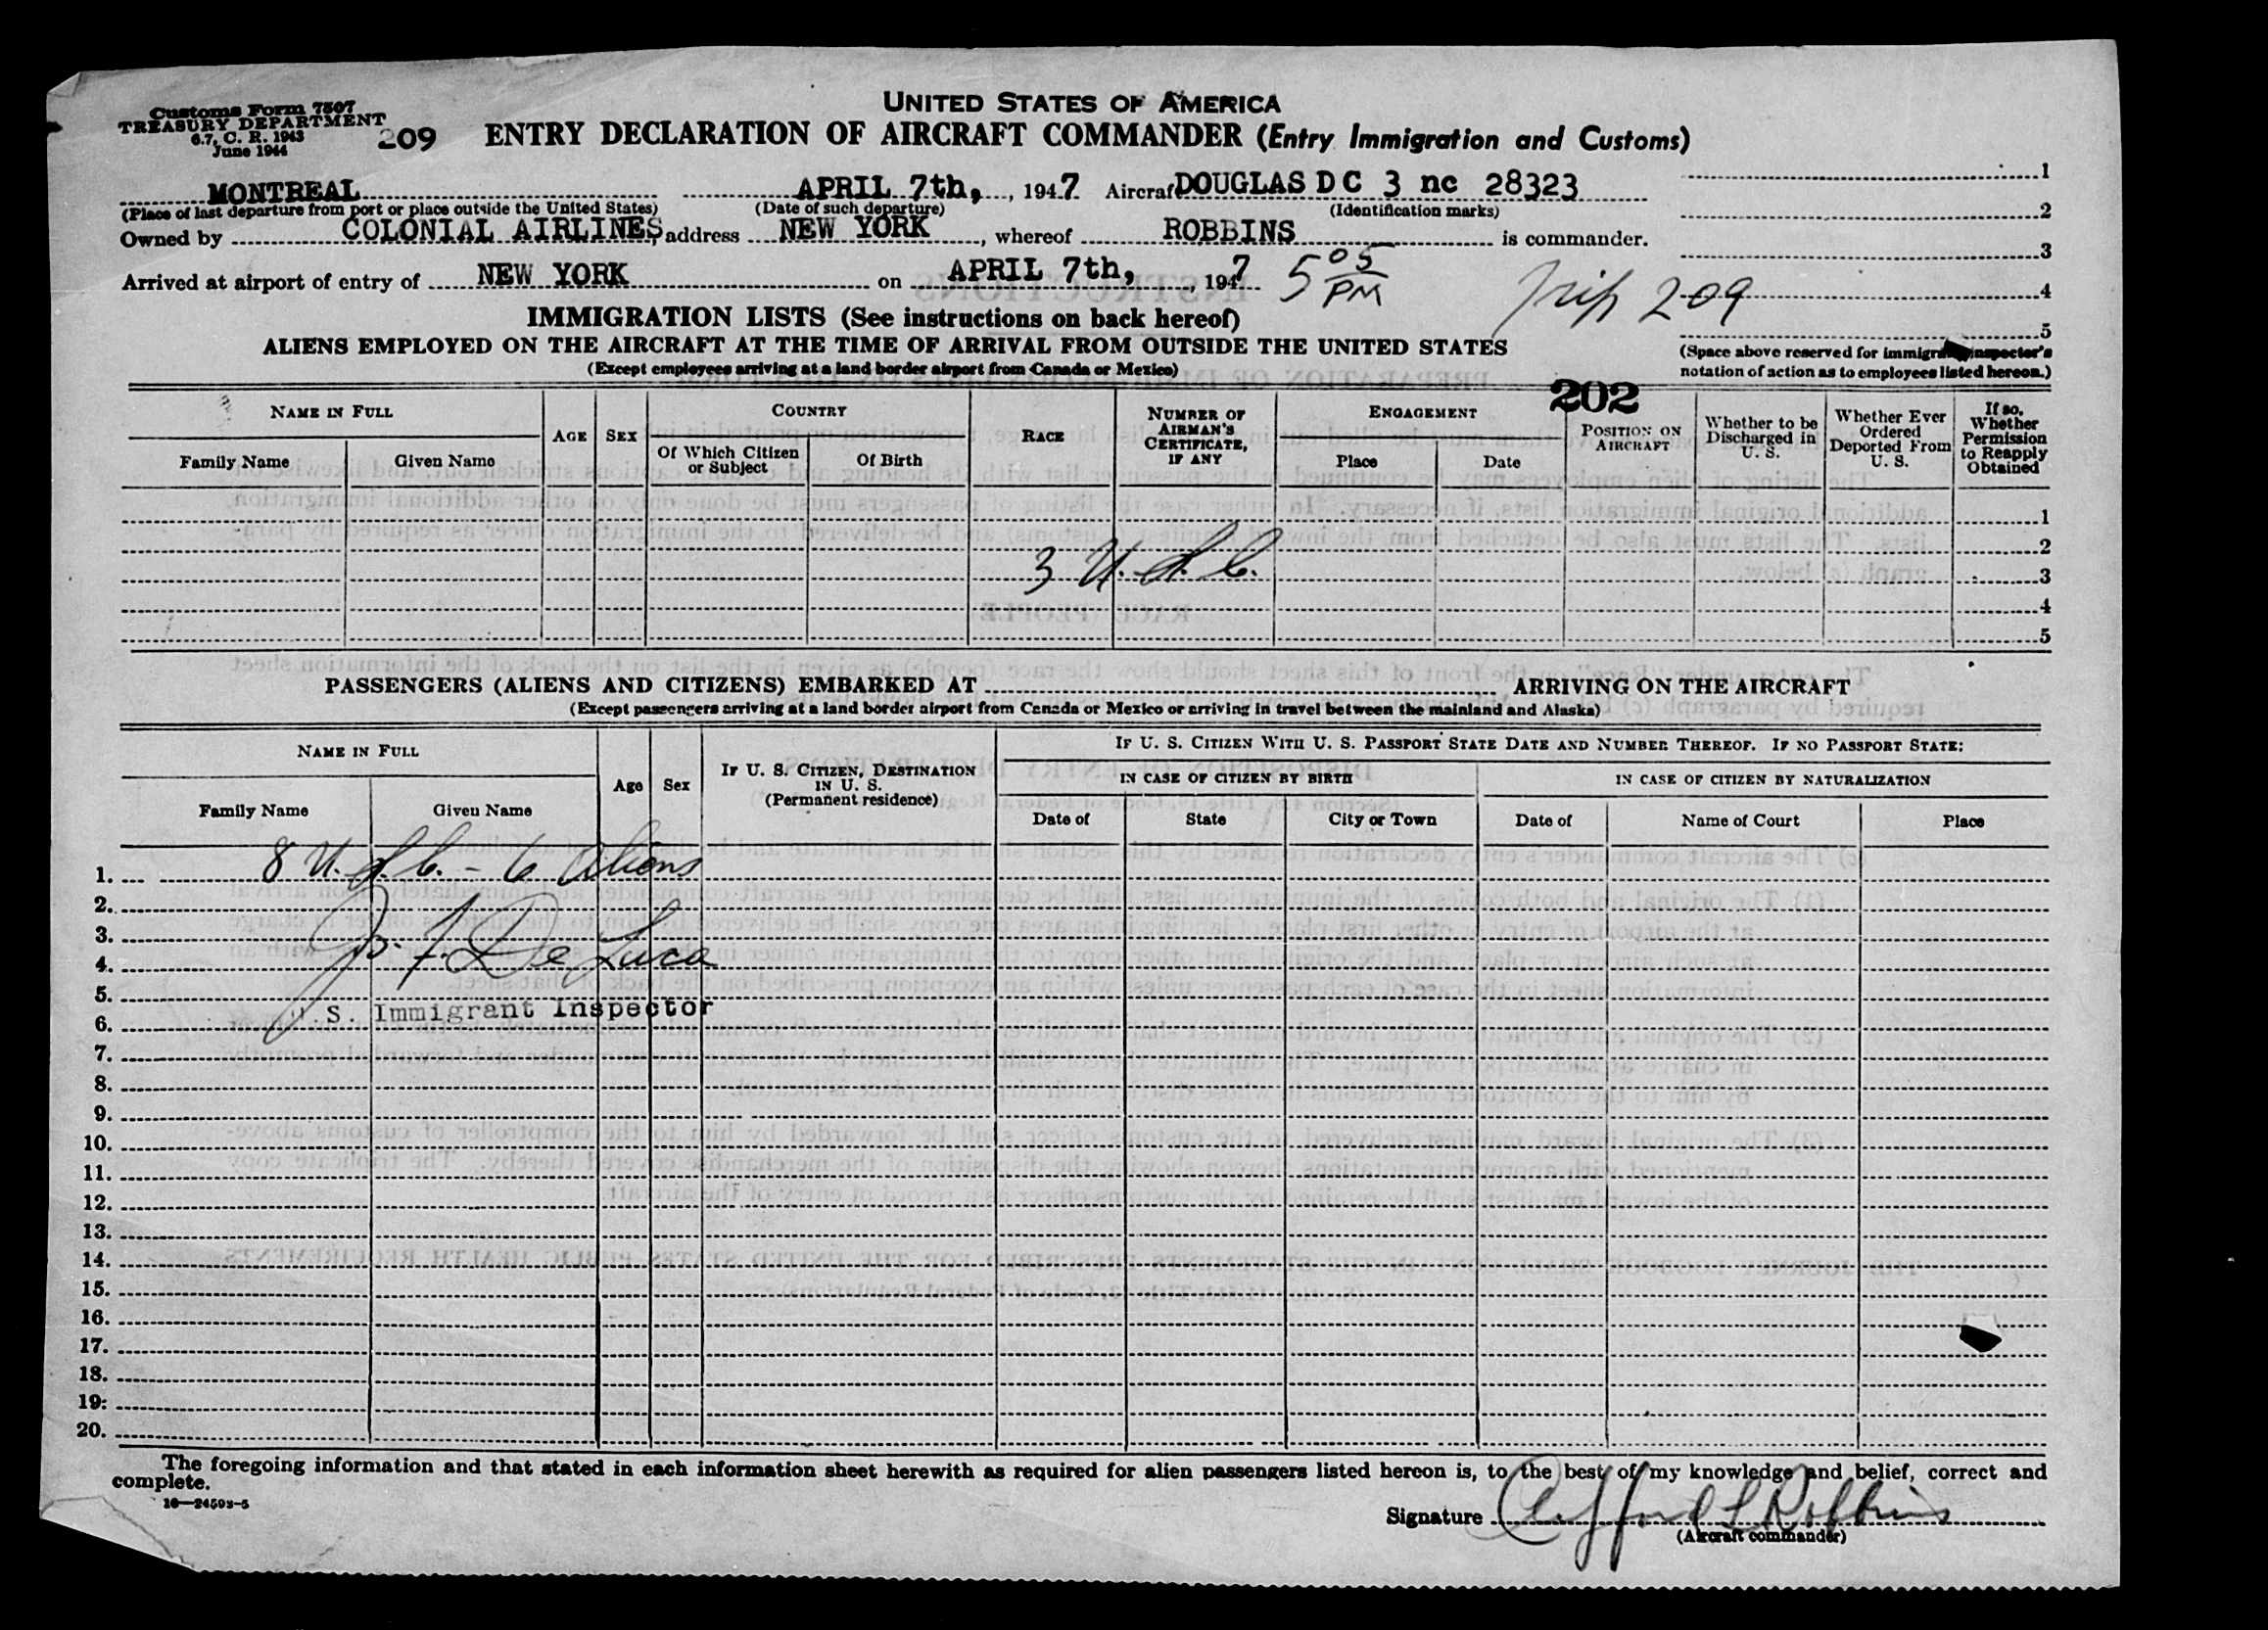 Customs Form 7507
TREASURY DEPARTMENT
6.7, C. R. 1943
June 1944
209
UNITED STATES OF AMERICA
ENTRY DECLARATION OF AIRCRAFT COMMANDER (Entry Immigration and Customs)
MONTREAL APRIL 7th, , 1947 Aircraft DOUGLAS DC 3 nc 28323
(Place of last departure from port or place outside the United States) (Date of such departure) (Identification marks)
Owned by COLONIAL AIRLINES, address NEW YORK, whereof ROBBINS is commander.
Arrived at airport of entry of NEW YORK on APRIL 7th, , 1947 5 05 PM
Trip 209
1
2
3
4
5
(Space above reserved for immigration inspector's
notation of action as to employees listed hereon.)
IMMIGRATION LISTS (See instructions on back hereof)
ALIENS EMPLOYED ON THE AIRCRAFT AT THE TIME OF ARRIVAL FROM OUTSIDE THE UNITED STATES
(Except employees arriving at a land border airport from Canada or Mexico)
202
NAME IN FULL
Family Name Given Name
AGE SEX
COUNTRY
Of Which Citizen or Subject Of Birth
RACE
NUMBER OF AIRMAN'S CERTIFICATE, IF ANY
ENGAGEMENT
Place Date
POSITION ON AIRCRAFT
Whether to be Discharged in U. S.
Whether Ever Ordered Deported From U. S.
If so, Whether Permission to Reapply Obtained
1
2
3 U. S. C. 3
4
5
PASSENGERS (ALIENS AND CITIZENS) EMBARKED AT ARRIVING ON THE AIRCRAFT
(Except passengers arriving at a land border airport from Canada or Mexico or arriving in travel between the mainland and Alaska)
NAME IN FULL
Family Name Given Name
Age Sex
IF U. S. CITIZEN, DESTINATION IN U. S.
(Permanent residence)
IF U. S. CITIZEN WITH U. S. PASSPORT STATE DATE AND NUMBER THEREOF. IF NO PASSPORT STATE:
IN CASE OF CITIZEN BY BIRTH IN CASE OF CITIZEN BY NATURALIZATION
Date of State City or Town Date of Name of Court Place
1. 8 U. S. C. - 6 Aliens
2.
3.
4. F. De Luca
5.
6. S. Immigrant Inspector
7.
8.
9.
10.
11.
12.
13.
14.
15.
16.
17.
18.
19.
20.
The foregoing information and that stated in each information sheet herewith as required for alien passengers listed hereon is, to the best of my knowledge and belief, correct and
complete.
16—24593-5
Signature Clifford L Robbins
(Aircraft commander)